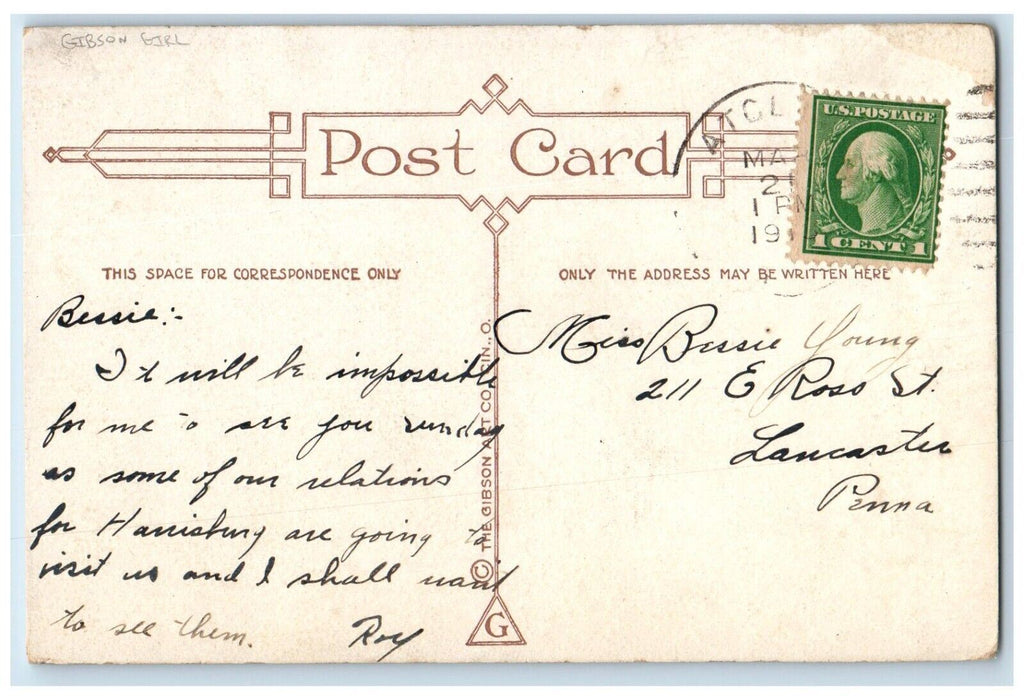 GIBSON GIRL
Post Card
ATGL
MA
2
1 PM
19
U.S. POSTAGE
1 CENT 1
THIS SPACE FOR CORRESPONDENCE ONLY
ONLY THE ADDRESS MAY BE WRITTEN HERE
Bessie:-
It will be impossible
for me to see you sunday
as some of our relations
for Harrisburg are going to
visit us and I shall want
to see them. Roy
© THE GIBSON ART CO., CIN., O.
G
Miss Bessie Young
211 E Ross St.
Lancaster
Penna